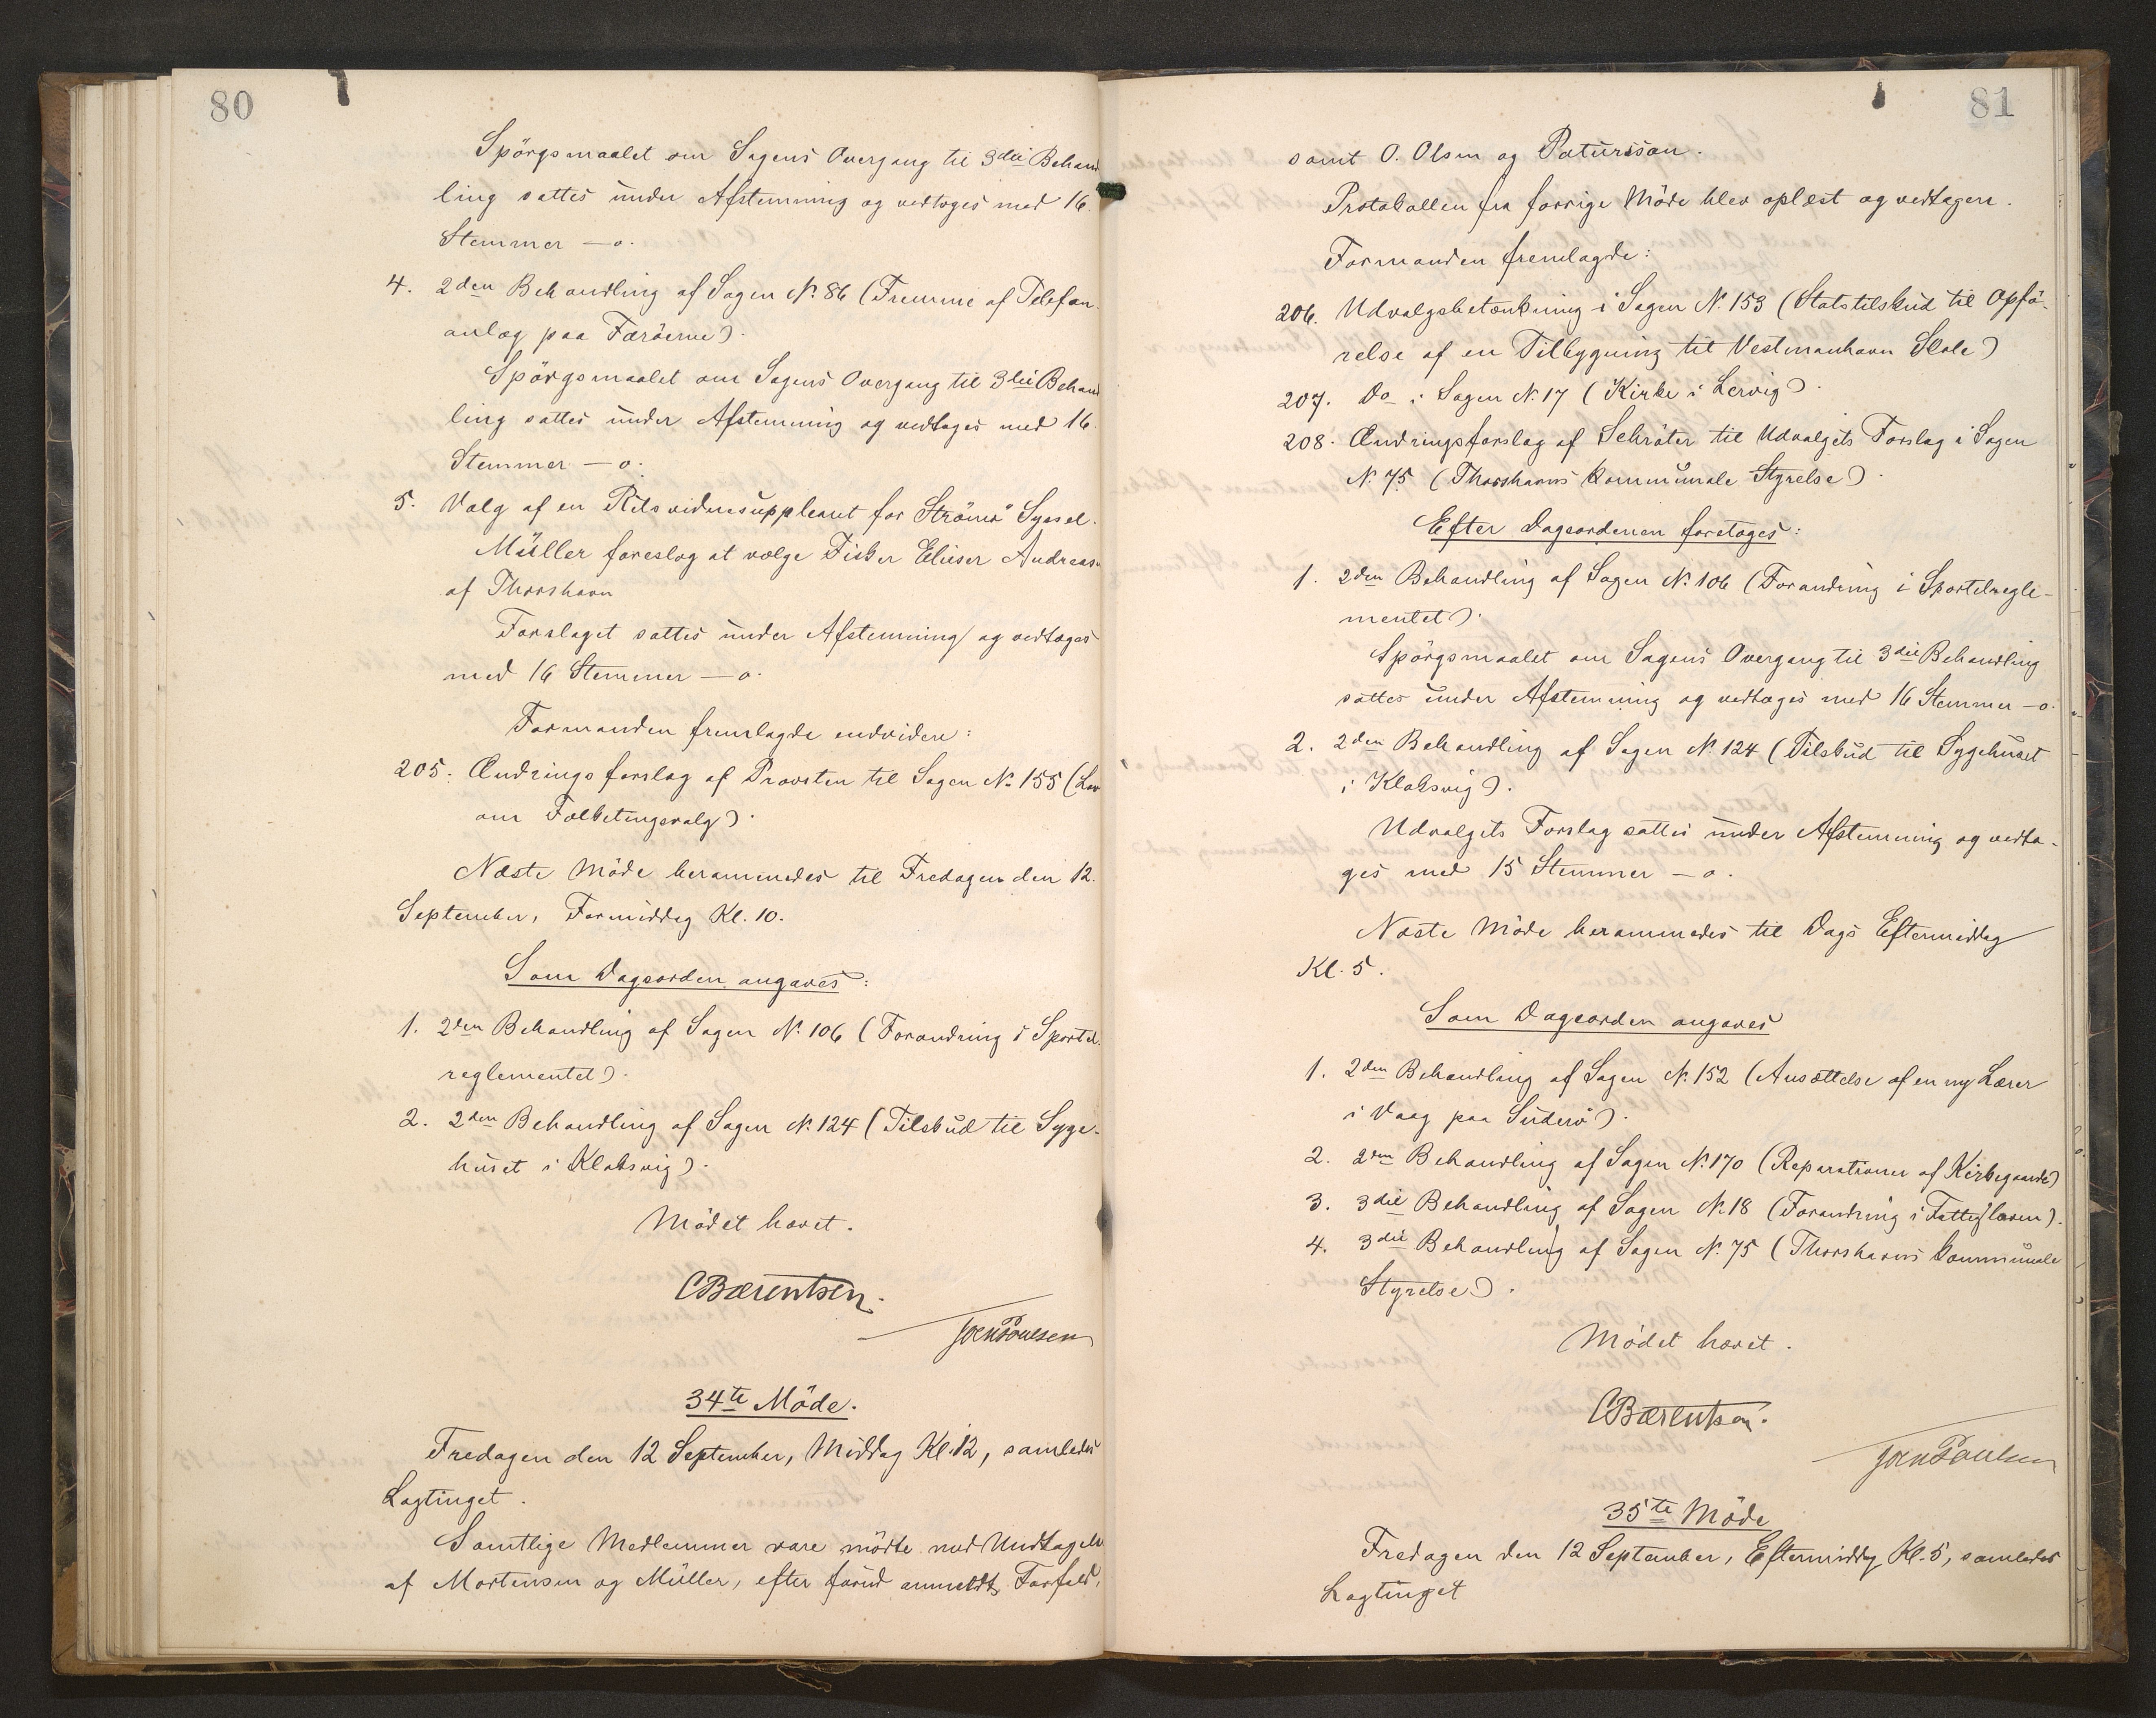 80
Spörgsmaalet om Sagens Overgang til 3die Behand
ling sattes under Afstemning og vedtoges med 16
Stemmer – o.
4. 2den Behandling af Sagen N. 86 (Fremme af Telefon
anlæg paa Færöerne).
Spörgsmaalet om Sagens Overgang til 3die Behand
ling sattes under Afstemning og vedtoges med 16
Stemmer – o.
5. Valg af en Retsvidnesuppleant for Strömö Syssel.
Müller foreslog at vælge Fisker Elieser Andreasen
af Thorshavn
Forslaget sattes under Afstemning og vedtoges
med 16 Stemmer – o.
Formanden fremlagde endvidere:
205. Ændringsforslag af Provsten til Sagen N. 155 (Lov
om Folketingsvalg).
Næste Möde berammedes til Fredagen den 12.
September, Formiddag Kl. 10.
Som Dagsorden angaves:
1. 2den Behandling af Sagen N. 106 (Forandring i Sportel
reglementet).
2. 2den Behandling af Sagen N. 124 (Tilskud til Syge-
huset i Klaksvig).
Mödet hævet.
CBærentsen.
Joen Poulsen
34te Möde.
Fredagen den 12 September, Middag Kl. 12, samledes
Lagtinget.
Samtlige Medlemmer vare mödte med Undtagelse
af Mortensen og Müller, efter forud anmeldt Forfald,
81
samt O. Olsen og Patursson.
Protokollen fra forrige Möde blev oplæst og vedtagen.
Formanden fremlagde:
206. Udvalgsbetænkning i Sagen N. 153 (Statstilskud til Opfö-
relse af en Tilbygning til Vestmanhavn Skole)
207. Do i Sagen N. 17 (Kirke i Lervig).
208. Ændringsforslag af Schröter til Udvalgets Forslag i Sagen
N. 75 (Thorshavns kommunale Styrelse).
Efter Dagsordenen foretoges:
1. 2den Behandling af Sagen N. 106 (Forandring i Sportelregle-
mentet).
Spörgsmaalet om Sagens Overgang til 3die Behandling
sattes under Afstemning og vedtoges med 16 Stemmer – o.
2. 2den Behandling af Sagen N. 124 (Tilskud til Sygehuset
i Klaksvig).
Udvalgets Forslag sattes under Afstemning og vedto-
ges med 15 Stemmer – o.
Næste Möde berammedes til Dags Eftermiddag
Kl. 5.
Som Dagsorden angaves
1. 2den Behandling af Sagen N. 152 (Ansættelse af en ny Lærer
i Vaag paa Suderö).
2. 2den Behandling af Sagen N. 170 (Reparationer af Kirkegaarde)
3. 3die Behandling af Sagen N. 18 (Forandring i Fattigloven).
4. 3die Behandling af Sagen N. 75 (Thorshavns kommunale
Styrelse).
Mödet hævet.
CBærentsen.
Joen Poulsen
35te Möde
Fredagen den 12 September, Eftermiddag Kl. 5, samledes
Lagtinget